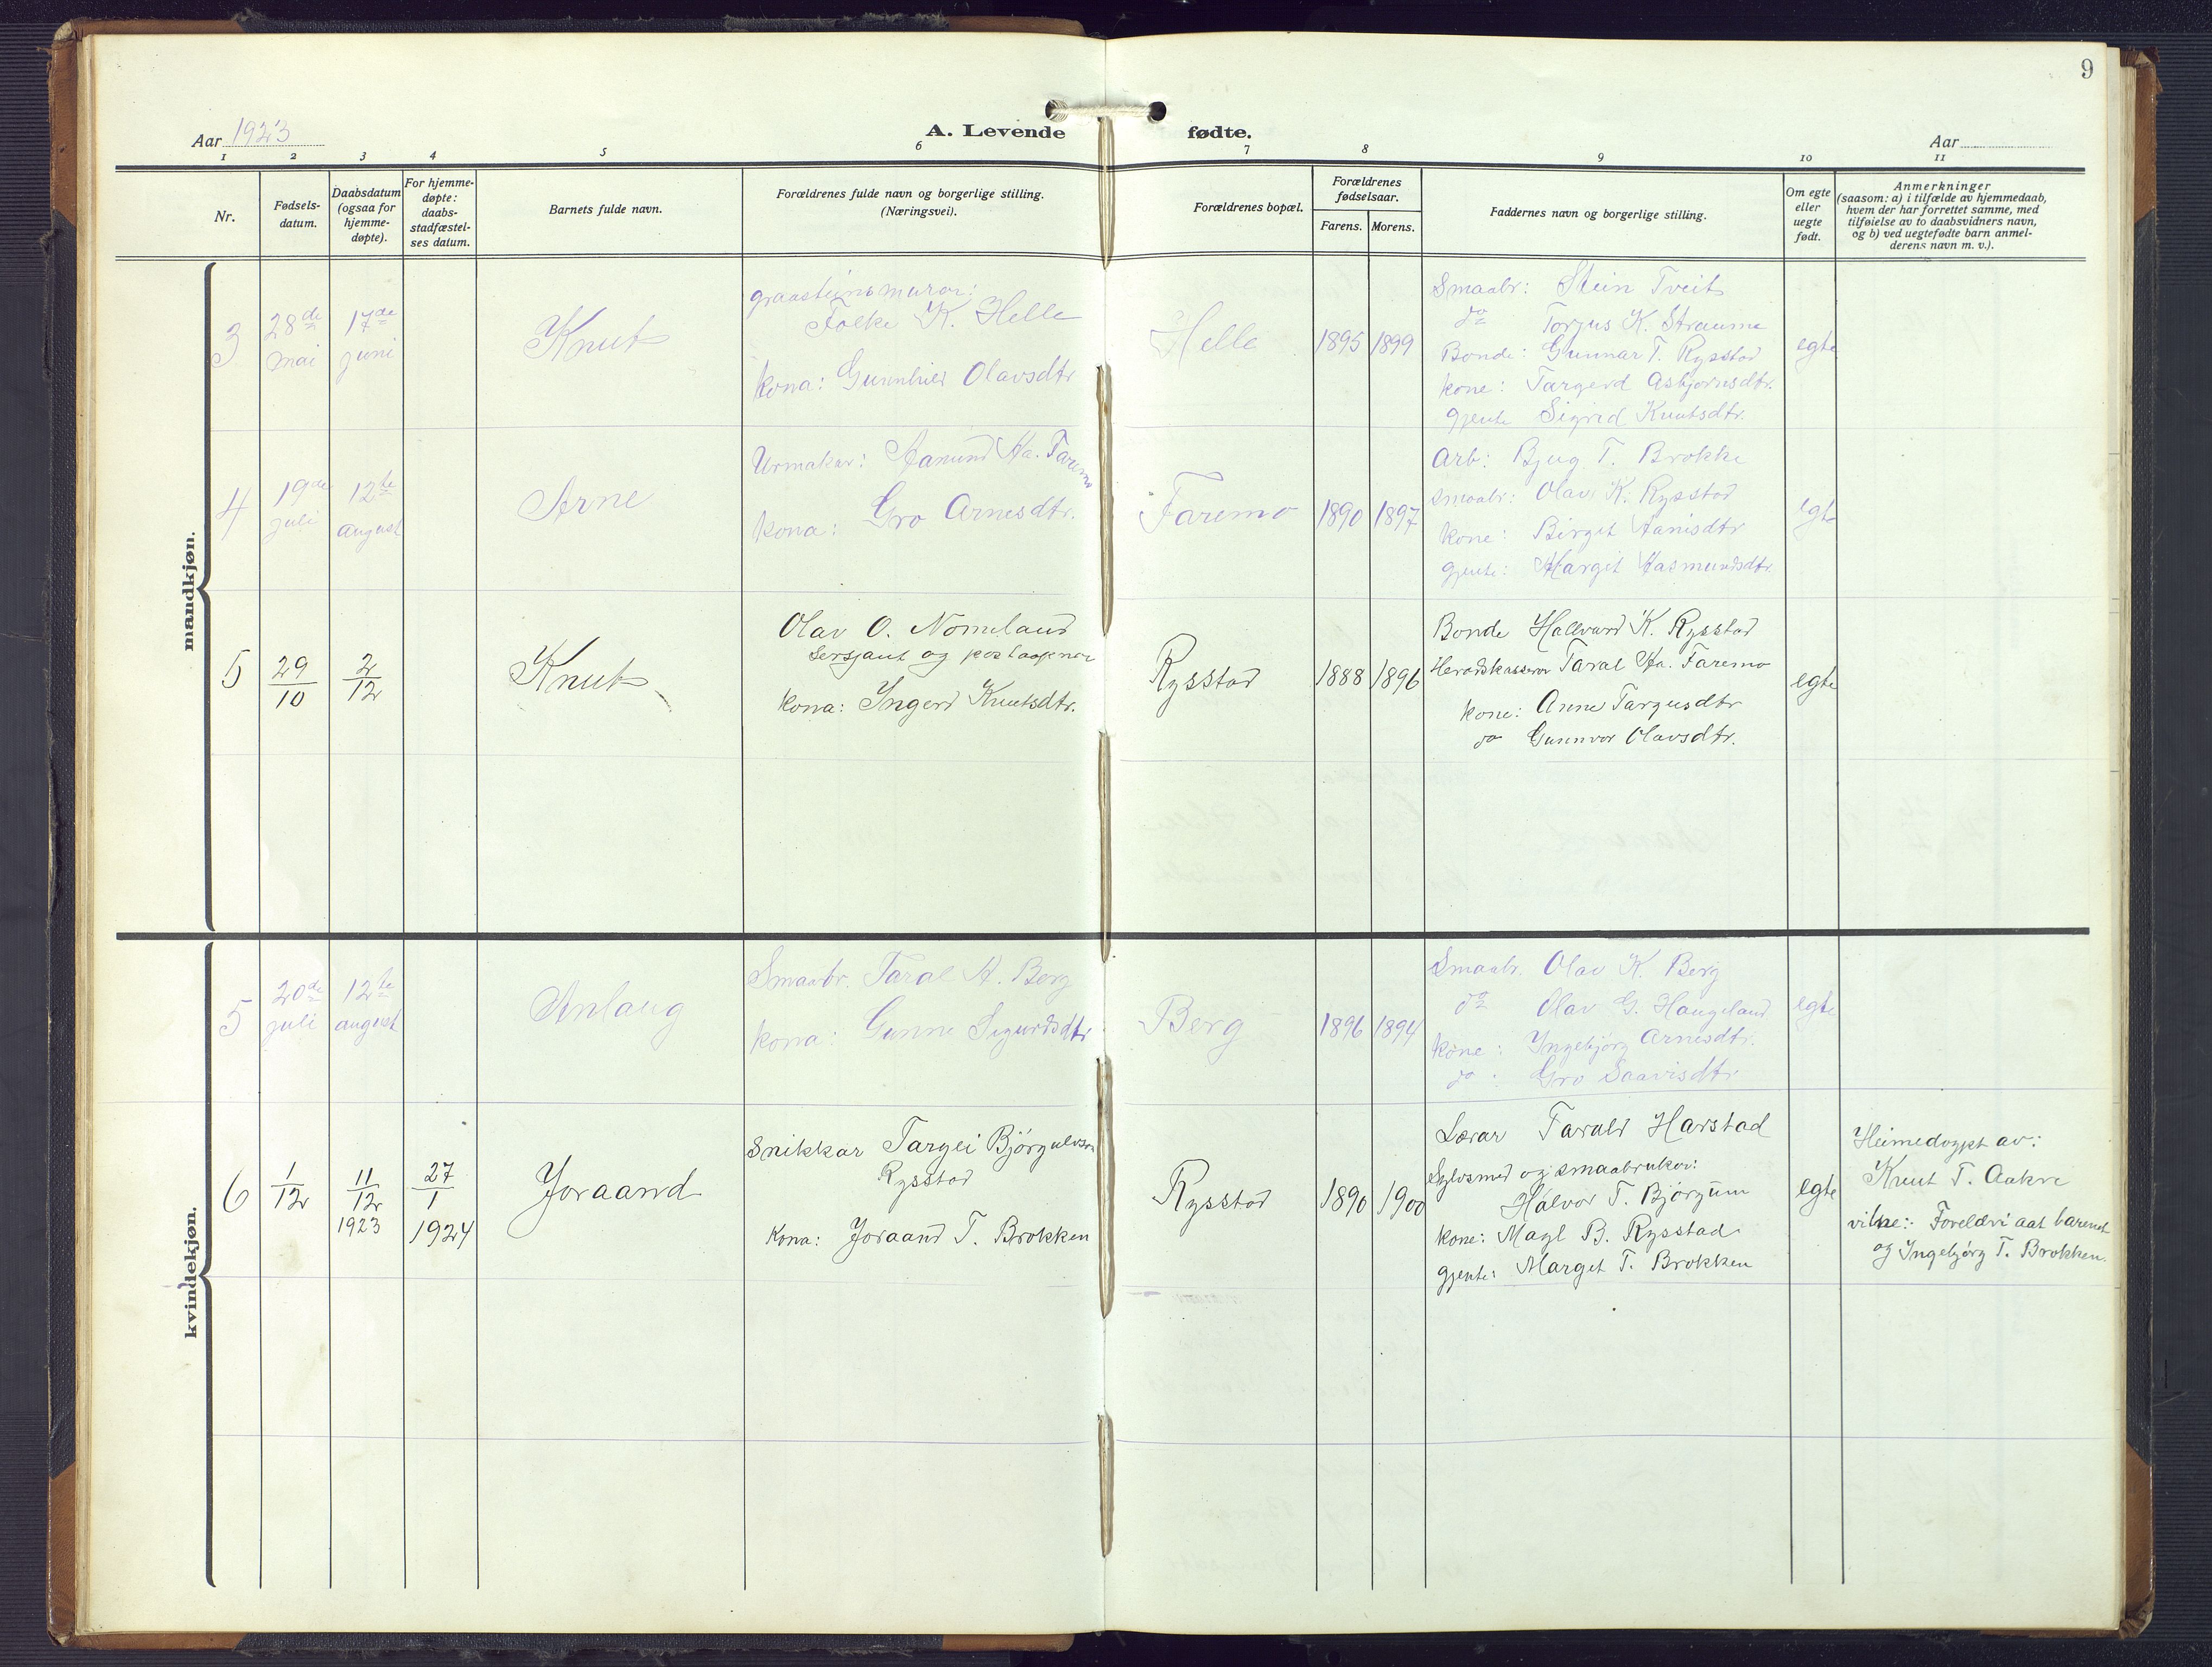 9
Aar 1923
A. Levende fødte.
Aar
1 2 3 4 5 6 7 8 9 10 11
Nr.
Fødsels-
datum.
Daabsdatum
(ogsaa for
hjemme-
døpte).
For hjemme-
døpte:
daabs-
stadfæstel-
ses datum.
Barnets fulde navn.
Forældrenes fulde navn og borgerlige stilling.
(Næringsvei).
Forældrenes bopæl.
Forældrenes
fødselsaar.
Farens. Morens.
Faddernes navn og borgerlige stilling.
Om egte
eller
uegte
født.
Anmerkninger
(saasom: a) i tilfælde av hjemmedaab,
hvem der har forrettet samme, med
tilføielse av to daabsvidners navn,
og b) ved uegtefødte barn anmel-
derens navn m. v.).
mandkjøn.
3
28de
mai
17de
juni
Knut
graasteinsmurar:
Folke K. Helle
kona: Gunnhild Olavsdtr
Helle
1895 1899
Smaabr: Stein Tveit
do Torjus K. Straume
Bonde: Gunnar T. Rysstad
kone: Targerd Asbjørnsdtr.
gjente Sigrid Knutsdtr.
egte
4
19de
juli
12te
august
Arne
Urmakar: Aamund Aa. Faremo
kona: Gro Arnesdtr.
Faremo
1890 1897
Arb: Bjug T. Brokke
smaabr: Olav K. Rysstad
kone: Birgit Aanisdtr
gjente: Margit Aasmundsdtr.
egte
5
29
10
2
12
Knut
Olav O. Nomeland
sersjant og postaapnar
kona: Yngerd Knutsdtr.
Rysstad
1888 1896
Bonde Hallvard K. Rysstad
Heradskasserar Taral Aa. Faremo
kone: Anne Targusdtr
do Gunnvor Olavsdtr.
egte
kvindekjøn.
5
20de
juli
12te
august
Anlaug
Smaabr. Taral A. Berg
kona: Gunne Sigurdsdtr
Berg
1896 1894
Smaabr. Olav K. Berg
do Olav G. Haugeland
kone: Yngebjørg Arnesdtr.
do: Gro Saavisdtr
egte
6
1
12
11
12
1923
27
1
1924
Joraand
Snikkar Targei Bjørgulvson
Rysstad
Kona: Joraand T. Brokken
Rysstad
1890 1900
Lærar Tarald Harstad
Sylvsmed og smaabrukar:
Halvor T. Bjørgum
kone: Magl B. Rysstad
gjente: Marget T. Brokken
egte
Heimedøypt av:
Knut T. Aakre
vitne: Foreldri aat barnet
og Yngebjørg T. Brokken.